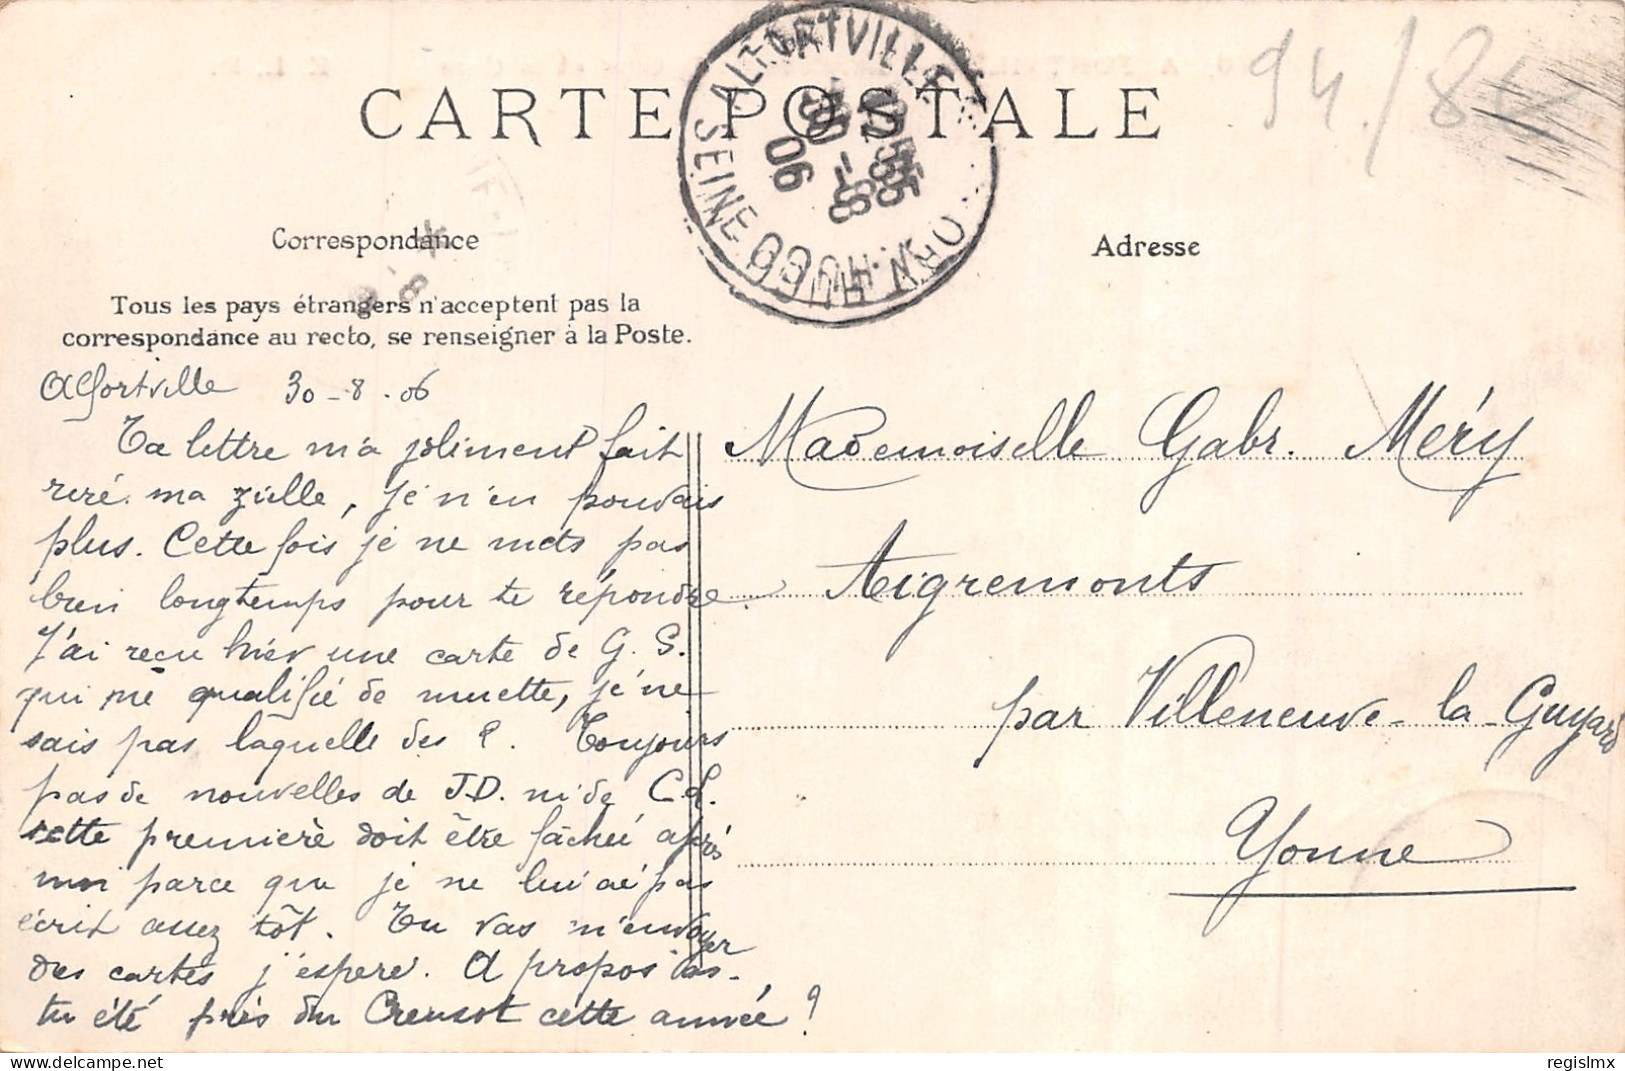 CARTE POSTALE
94/8
ALFORTVILLE
SEINE
30 -8
06
Correspondance
Adresse
Tous les pays étrangers n'acceptent pas la
correspondance au recto, se renseigner à la Poste.
Alfortville 30-8-06
Ta lettre m'a joliment fait
rire ma zielle, je n'en pouvais
plus. Cette fois je ne mets pas
bien longtemps pour te répondre.
J'ai reçu hier une carte de G. S.
qui me qualifie de muette, je ne
sais pas laquelle des 2. Toujours
pas de nouvelles de J.D. ni de C.L.
cette première doit être fâchée après
moi parce que je ne lui ai pas
écrit assez tôt. Tu vas m'envoyer
des cartes j'espère. A propos as-
tu été près du Creusot cette année ?
Mademoiselle Gabr. Méry
Aigremonts
par Villeneuve-la-Guyard
Yonne
delcampe.net
regislmx